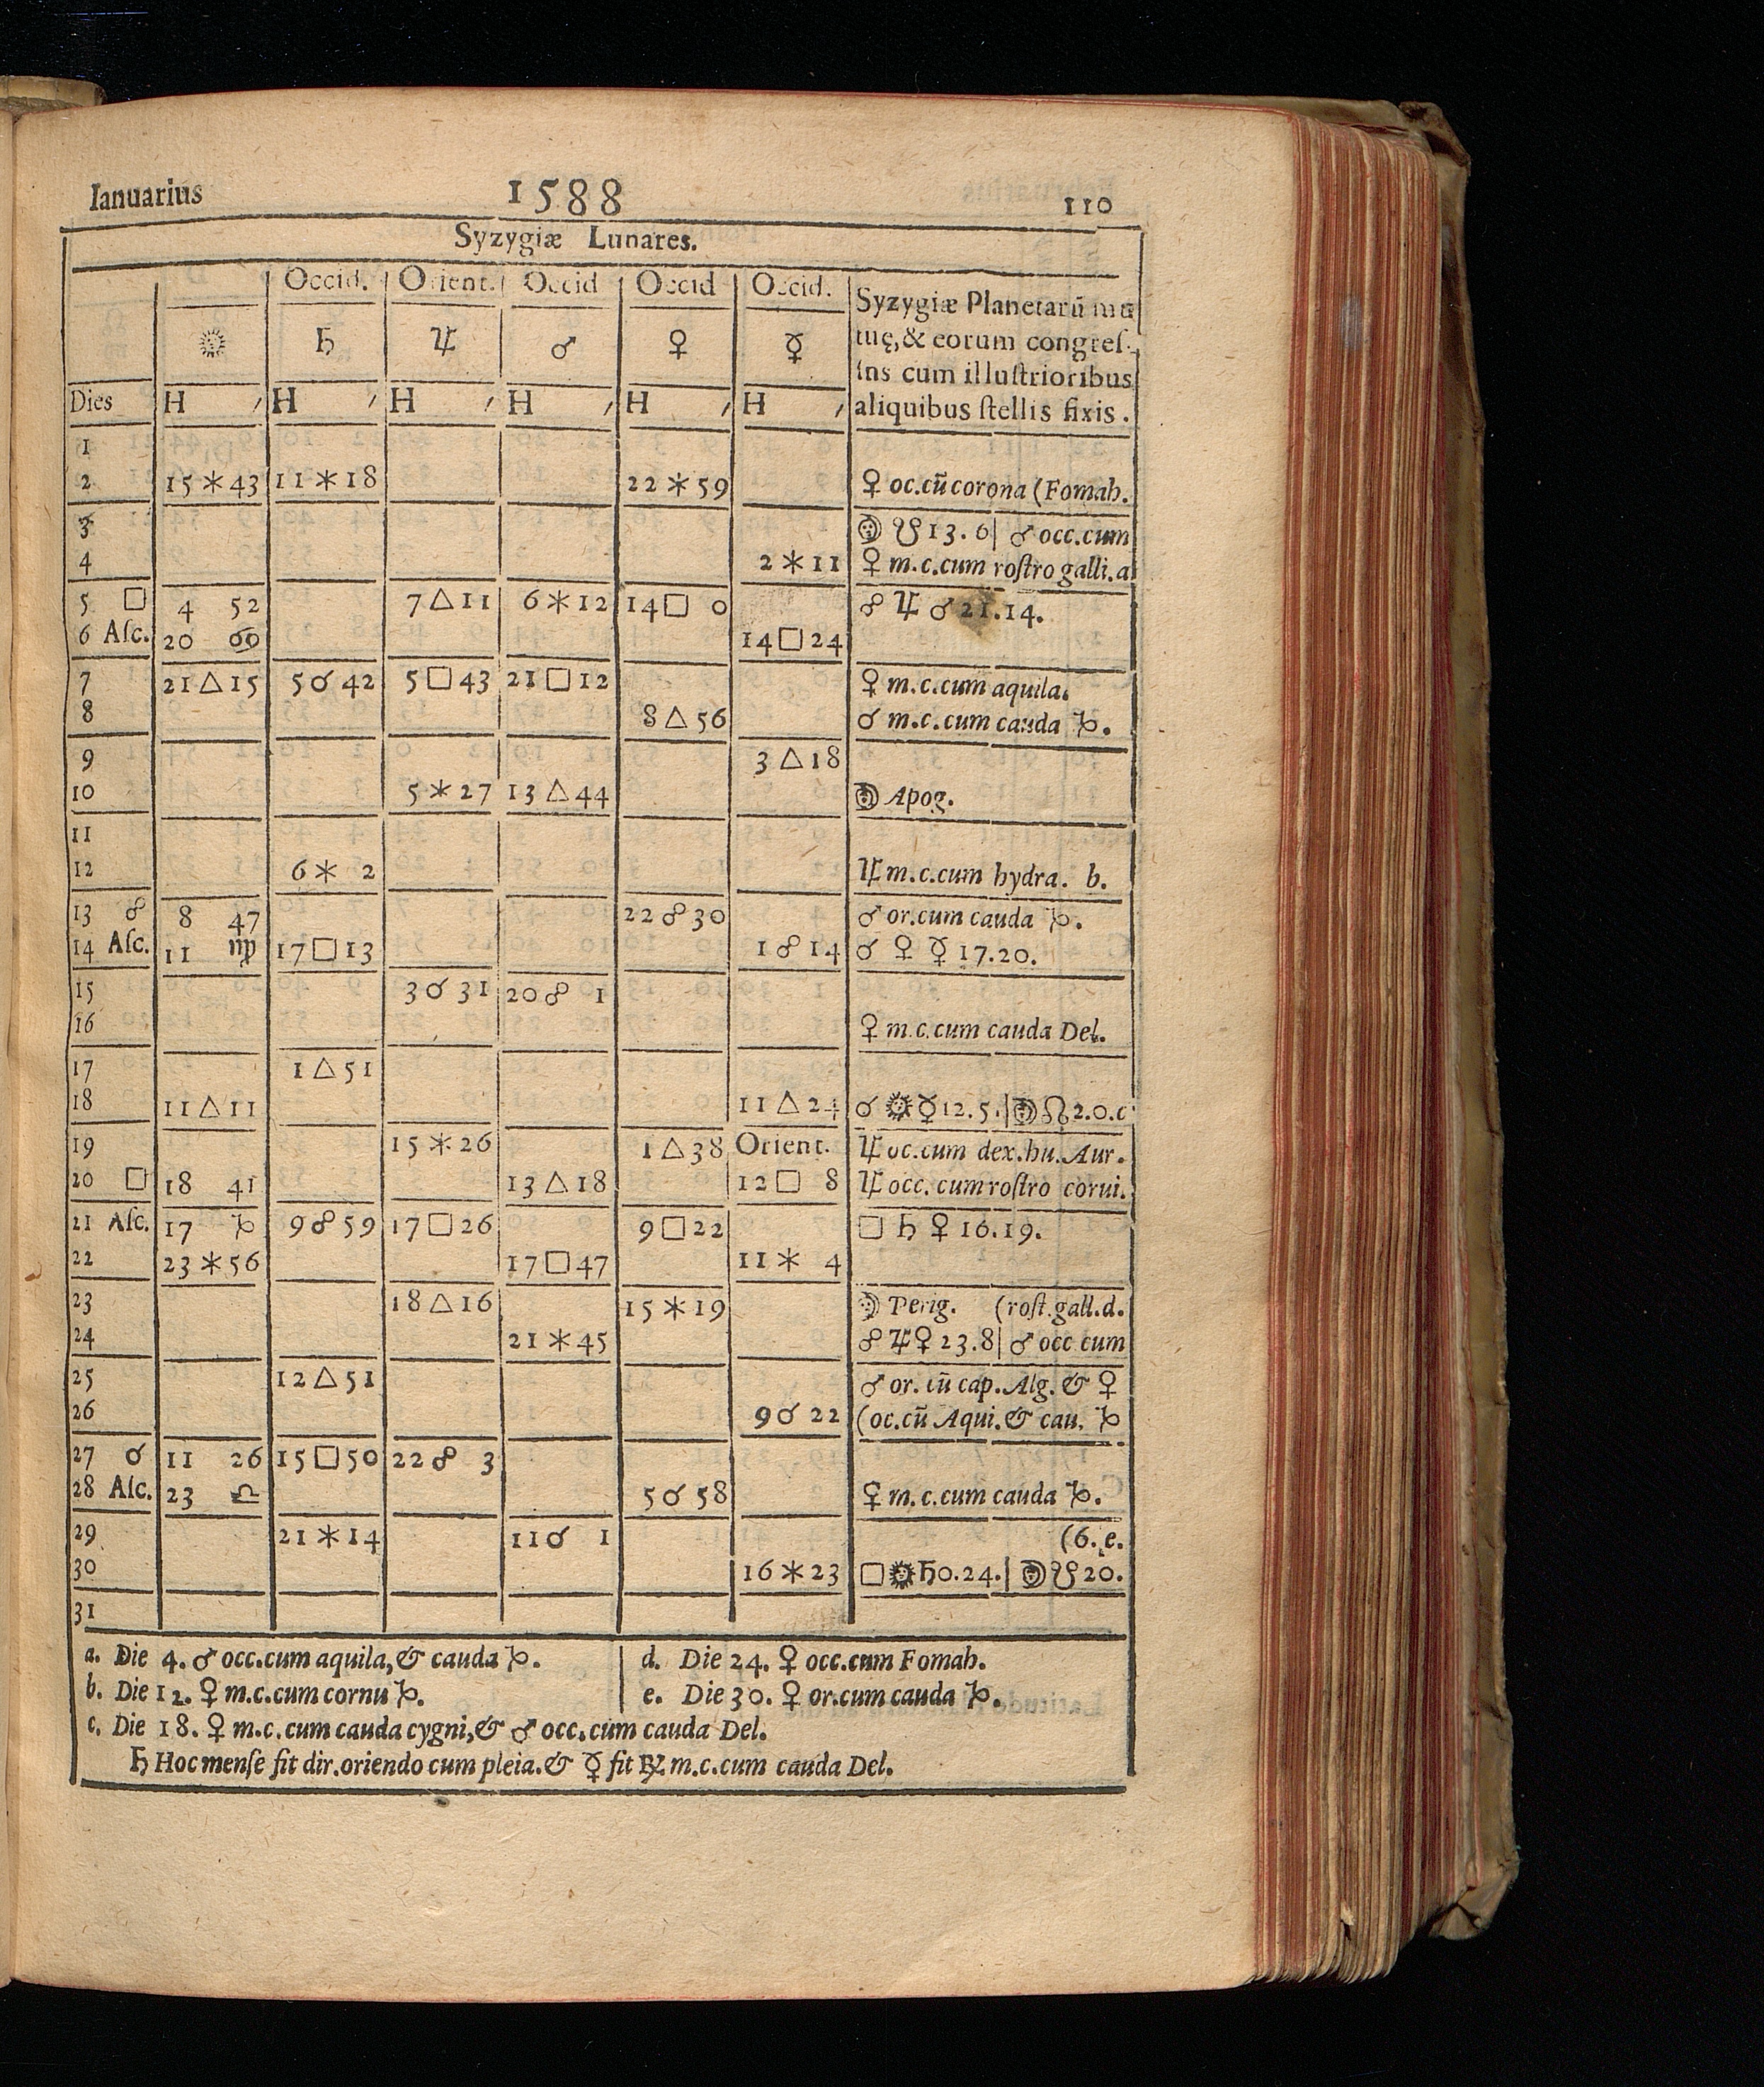 Ianuarius 1588 110
Syzygiæ Lunares.
Occid. Orient. Occid Occid Occid.
☉ ♄ ♃ ♂ ♀ ☿
Syzygiæ Planetarū mu
tuę, & eorum congreſ-
ſus cum illuſtrioribus
aliquibus ſtellis fixis.
Dies H ′ H ′ H ′ H ′ H ′ H ′
1
2 15⚹43 11⚹18 22⚹59 ♀ oc.cū corona (Fomah.
3 ☽ ☋ 13.6| ♂ occ.cum
4 2⚹11 ♀ m.c.cum roſtro galli.a
5 □ 4 52 7△11 6⚹12 14□ 0 ☍ ♃ ♂ 21.14.
6 Aſc. 20 ♋ 14□24
7 21△15 5☌42 5□43 21□12 ♀ m.c.cum aquila.
8 8△56 ☌ m.c.cum cauda ♑.
9 3△18
10 5⚹27 13△44 ☽ Apog.
11
12 6⚹ 2 ♃ m.c.cum hydra. b.
13 ☍ 8 47 22☍30 ♂ or.cum cauda ♑.
14 Aſc. 11 ♍ 17□13 1☍14 ☌ ♀ ☿ 17.20.
15 3☌31 20☍ 1
16 ♀ m.c.cum cauda Del.
17 1△51
18 11△11 11△24 ☌ ☉ ☿ 12.5.|☽ ☊ 2.0.c
19 15⚹26 1△38 Orient. ♃ oc.cum dex.hu.Aur.
20 □ 18 41 13△18 12□ 8 ♃ occ.cum roſtro corui.
21 Aſc. 17 ♑ 9☍59 17□26 9□22 □ ♄ ♀ 16.19.
22 23⚹56 17□47 11⚹ 4
23 18△16 15⚹19 ☽ Perig. (roſt.gall.d.
24 21⚹45 ☍ ♃ ♀ 23.8| ♂ occ cum
25 12△51 ♂ or.cū cap.Alg.& ♀
26 9☌22 (oc.cū Aqui.& cau. ♑
27 ☌ 11 26 15□50 22☍ 3
28 Aſc. 23 ♎ 5☌58 ♀ m.c.cum cauda ♑.
29 21⚹14 11☌ 1 (6.e.
30 16⚹23 □ ☉ ♄ 0.24.| ☽ ☋ 20.
31
a. Die 4. ♂ occ.cum aquila, & cauda ♑.
b. Die 12. ♀ m.c.cum cornu ♑.
d. Die 24. ♀ occ.cum Fomah.
e. Die 30. ♀ or.cum cauda ♑.
c. Die 18. ♀ m.c.cum cauda cygni, & ♂ occ.cum cauda Del.
♄ Hoc menſe fit dir.oriendo cum pleia.& ☿ fit ℞ m.c.cum cauda Del.